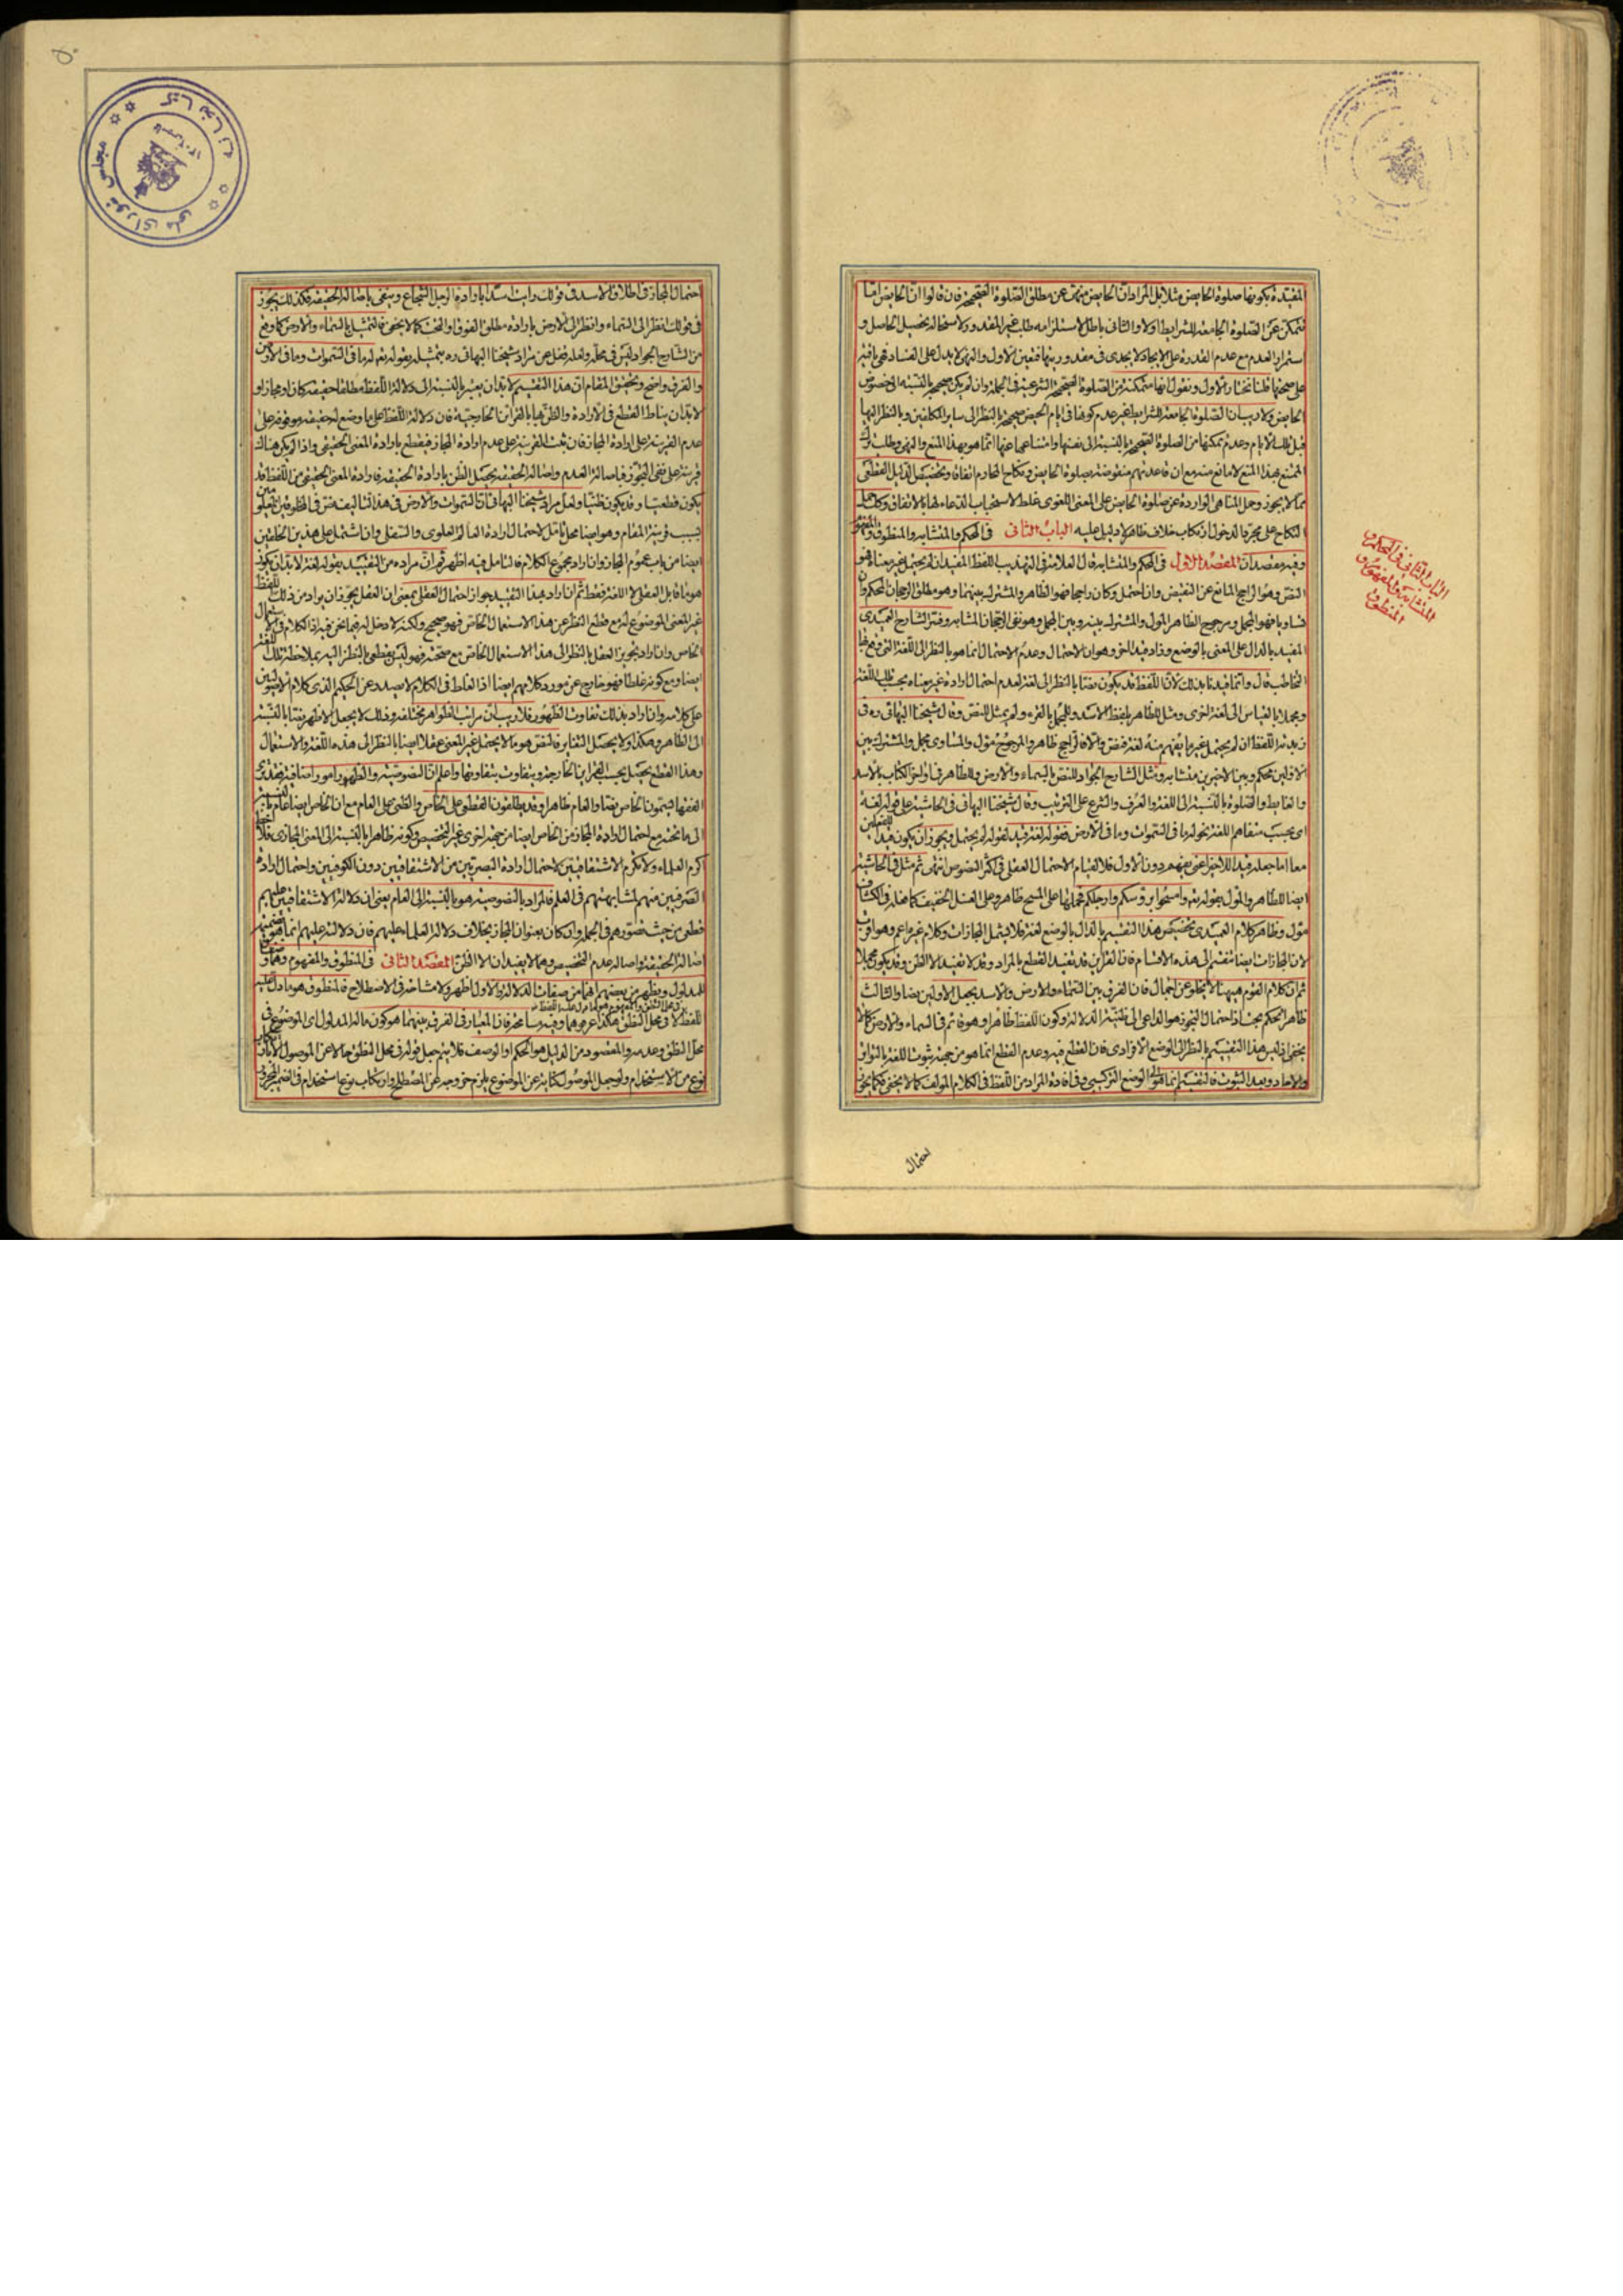 المقيدة بكونها صلوة الحايض مثلا بل المراد ان الحايض منهية عن مطلق الصلوة الصحيحة فان قالوا ان الحايض اما
تتمكن عن الصلوة الجامعة للشرايط اولا والثاني باطل لاستلزامه طلب غير المقدور ولاستحالة تحصيل الحاصل و
استمرار العدم مع عدم القدرة على الايجاد لا يجدى في مقدوريتها فتعين الاول والنهى لا يدل على الفساد فهى باقية
على صحتها قلنا نختار الاول ونقول انها متمكنة من الصلوة الصحيحة الشرعية في الجملة وان لم يكن صحيحة بالنسبة الى خصوص
الحايض ولا ريب ان الصلوة الجامعة للشرايط غير عدم كونها في ايام الحيض صحيحة بالنظر الى ساير المكلفين وبالنظر اليها
قبل تلك الايام وعدم تمكنها من الصلوة الصحيحة بالنسبة الى نفسها وامتناعها عنها انما هو بهذا المنع والنهى وطلب ترك
الممتنع بهذا المنع لا مانع منه مع ان قاعدتهم منقوضة بصلوة الحايض ونكاح المحارم اتفاقا وتخصيص الدليل القطعى
مما لا يجوز وحمل المناهى الواردة عن صلوة الحايض على المعنى اللغوى غلط لاستحباب الدعاء لها بالاتفاق وكذا حمل
النكاح على مجرد الدخول ارتكاب خلاف ظاهر لا دليل عليه الباب الثانى في المحكم والمتشابه والمنطوق والمفهوم
وفيه مقصدان المقصد الاول في المحكم والمتشابه قال العلامة في التهذيب اللفظ المفيد ان لم يحتمل غير معناه فهو
النص وهو الراجح المانع عن النقيض وان احتمل وكان راجحا فهو الظاهر والمشترك بينهما وهو مطلق الرجحان المحكم وان
تساويا فهو المجمل ومرجوح الظاهر المأول والمشترك بينه وبين المجمل وهو نفى الرجحان المتشابه وفسر الشارح العميدى
المفيد بالدال على المعنى بالوضع وزاد قيدا اخر وهو ان الاحتمال وعدم الاحتمال انما هو بالنظر الى اللغة التى وقع بها
التخاطب قال وانما قيدنا بذلك لان اللفظ قد يكون نصا بالنظر الى لغة لعدم احتمال ارادة غير معناه بحسب تلك اللغة
ومجملا بالقياس الى لغة اخرى ومثل للظاهر بلفظ الاسد وللمجمل بالقرء ولم يمثل للنص وقال شيخنا البهائى ره في
زبدته اللفظ ان لم يحتمل غير ما يفهم منه لغة فنص والا فالراجح ظاهر والمرجوح مؤول والمساوى مجمل والمشترك بين
الاولين محكم وبين الاخيرين متشابه ومثل الشارح الجواد للنص بالسماء والارض وللظاهر في اواخر الكتاب بالاسد
والغايط والصلوة بالنسبة الى اللغة والعرف والشرع على الترتيب وقال شيخنا البهائى في الحاشية على قوله لغة
اى بحسب متفاهم اللغة نحو له ما في السموات وما في الارض فقوله لغة قيد لقوله لم يحتمل ويجوز ان يكون قيدا للفعلين
معا اما جعله قيدا للاخير اعنى يفهم دون الاول فلا لقيام الاحتمال العقلى في اكثر النصوص انتهى ثم مثل في الحاشية
ايضا للظاهر والمؤول بقوله تعم وامسحوا برؤسكم وارجلكم فحملها على المسح ظاهر وعلى الغسل الخفيف كما فعله في الكشاف
مؤول وظاهر كلام العميدى تخصيص هذا التقسيم بالدال بالوضع لغة فلا يشمل المجازات وكلام غيره اعم وهو اقرب
لان المجازات ايضا تنقسم الى هذه الاقسام فان القراين قد تفيد القطع بالمراد وقد لا تفيد الا الظن وقد يكون مجملا
ثم ان كلام القوم هيهنا لا يخلو عن اجمال فان الفرق بين السماء والارض والاسد بجعل الاولين نصا والثالث
ظاهرا تحكم بحت اذ احتمال التجوز هو الداعى الى ظنية الدلالة وكون اللفظ ظاهرا وهو قائم في السماء والارض كما لا
يخفى اذ ليس هذا التقسيم بالنظر الى الوضع الافرادى فان القطع فيه وعدم القطع انما هو من جهة ثبوت اللغة بالتواتر
والاحاد وبعد الثبوت فالتقسيم انما هو الى الوضع التركيبى وفي افادة المراد من اللفظ في الكلام المؤلف كما لا يخفى فكما يجوز
احتمال
الباب الثانى في المحكم و
المتشابه والمفهوم و
المنطوق
احتمال المجاز في اطلاق الاسد في قولك رايت اسدا بارادة الرجل الشجاع وينفى باصالة الحقيقة فكذلك يجوز
في قولك انظر الى السماء وانظر الى الارض بارادة مطلق الفوق والتحت كما لا يخفى فالتمثيل بالسماء والارض كما وقع
من الشارح الجواد ليس في محله ولعله غفل عن مراد شيخنا البهائى ره بتمثيله بقوله تعم له ما في السموات وما في الارض
والفرق واضح وتحقيق المقام ان هذا التقسيم لا بد ان يعتبر بالنسبة الى دلالة اللفظ مطلقا حقيقة كان او مجازا و
لا بد ان يناط القطع في الارادة والظن بها بالقرائن الخارجية فان دلالة اللفظ على ما وضع له حقيقة موقوفة على
عدم القرينة على ارادة المجاز فان ثبت القرينة على عدم ارادة المجاز فيقطع بارادة المعنى الحقيقى واذا لم يكن هناك
قرينة على نفى التجوز فباصالة العدم واصالة الحقيقة يحصل الظن بارادة الحقيقة فارادة المعنى الحقيقى من اللفظ قد
يكون قطعيا وقد يكون ظنيا ولعل مراد شيخنا البهائى ان السموات والارض في هذا التأليف نص في المخلوقين المعلومين
بسبب قرينة المقام وهو ايضا محل تامل لاحتمال ارادة العالم العلوى والسفلى وان اشتمل على هذين الخاصين
ايضا من باب عموم المجاز وان اراد مجموع الكلام فالتامل فيه اظهر ثم ان مراده من التقييد بقوله لغة لا بد ان يكون
هو ما قابل العقل لا اللغة فقط ثم ان اراد بهذا التقييد جواز احتمال العقلى بمعنى ان العقل يجوز ان يراد من ذلك اللفظ
غير المعنى الموضوع له مع قطع النظر عن هذا الاستعمال الخاص فهو صحيح ولكنه لا دخل له فيما نحن فيه اذ الكلام في الاستعمال
الخاص وان اراد تجويز العقل بالنظر الى هذا الاستعمال الخاص مع صحته فهو ليس بقطعى بالنظر اليه بملاحظة تلك اللغة
ايضا ومع كونه غلطا فهو خارج عن مورد كلامهم ايضا اذ الغلط في الكلام لا يصدر عن الحكيم الذى كلام الاصوليين
على كلامه وان اراد بذلك تفاوت الظهور فلا ريب ان مراتب الظواهر مختلفة وذلك لا يجعل الاظهر نصا بالنسبة
الى الظاهر وهكذا ولا يحصل التغاير فالنص هو ما لا يحتمل غير المعنى عقلا ايضا بالنظر الى هذه اللغة والاستعمال
وهذا القطع يحصل بحسب القراين الخارجة ويتفاوت بتفاوتها واعلم ان النصوصية والظهور امور اضافية فقد يرى
الفقها يسمون الخاص نصا والعام ظاهرا وقد يطلقون القطعى على الخاص والظنى على العام مع ان الخاص ايضا عام بالنسبة
الى ما تحته مع احتمال ارادة المجاز من الخاص ايضا من جهة اخرى غير التخصيص وكونه ظاهرا بالنسبة الى المعنى المجازى
اكرم العلماء ولا تكرم الاشتقاقيين لاحتمال ارادة البصريين من الاشتقاقيين دون الكوفيين واحتمال ارادة
الصرفيين منهم لمشابهتهم في العلم فالمراد بالنصوصية هو بالنسبة الى العام يعنى ان دلالة الاشتقاقيين عليهم
قطعى من حيث تصورهم في الجملة وان كان بعنوان المجاز بخلاف دلالة العلماء عليهم فان دلالته عليهم انما هو بضميمة
اصالة الحقيقة واصالة عدم التخصيص وهما لا يفيدان الا الظن المقصد الثانى في المنطوق والمفهوم وهما وصفان
للمدلول ويظهر من بعضهم انهما من صفات الدلالة والاول اظهر ولا مشاحة في الاصطلاح فالمنطوق هو ما دل عليه
اللفظ في محل النطق والمفهوم هو ما دل عليه اللفظ لا في محل النطق هكذا عرفوهما وفيه مسامحة فان المعيار في الفرق بينهما هو كون ما له المدلول اى الموضوع في
محل النطق وعدمه والمقصود من المدلول هو الحكم او الوصف فلا يتم جعل قوله في محل النطق حالا عن الموصول الا بارتكاب
نوع من الاستخدام ولو جعل الموصول كناية عن الموضوع يلزم خروجه عن المصطلح وارتكاب نوع استخدام في الضمير المجرور